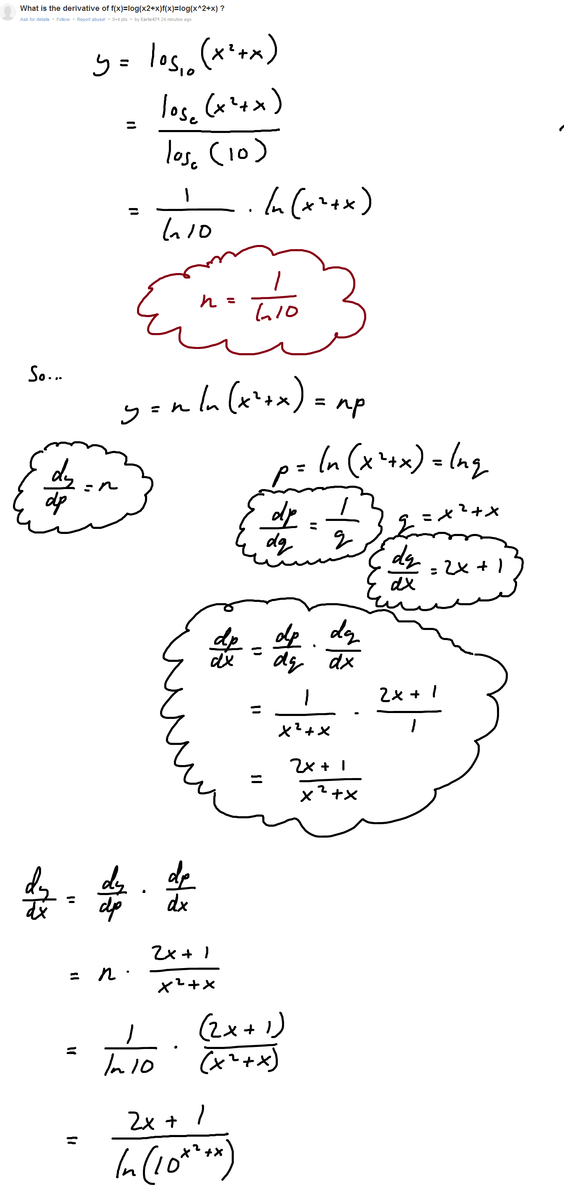 What is the derivative of f(x)=log(x2+x)f(x)=log(x^2+x) ?
Ask for details • Follow • Report abuse!
y = log₁₀ (x²+x)
= logₑ (x²+x) / logₑ (10)
= 1/ln10 · ln(x²+x)
n = 1/ln10
So...
y = n ln (x²+x) = np
dy/dp = n
p = ln (x²+x) = lnq
dp/dq = 1/q
q = x²+x
dq/dx = 2x+1
dp/dx = dp/dq · dq/dx
= 1/x²+x · 2x+1/1
= 2x+1/x²+x
dy/dx = dy/dp · dp/dx
= n · 2x+1/x²+x
= 1/ln10 · (2x+1)/(x²+x)
= 2x+1/ln(10^x²+x)